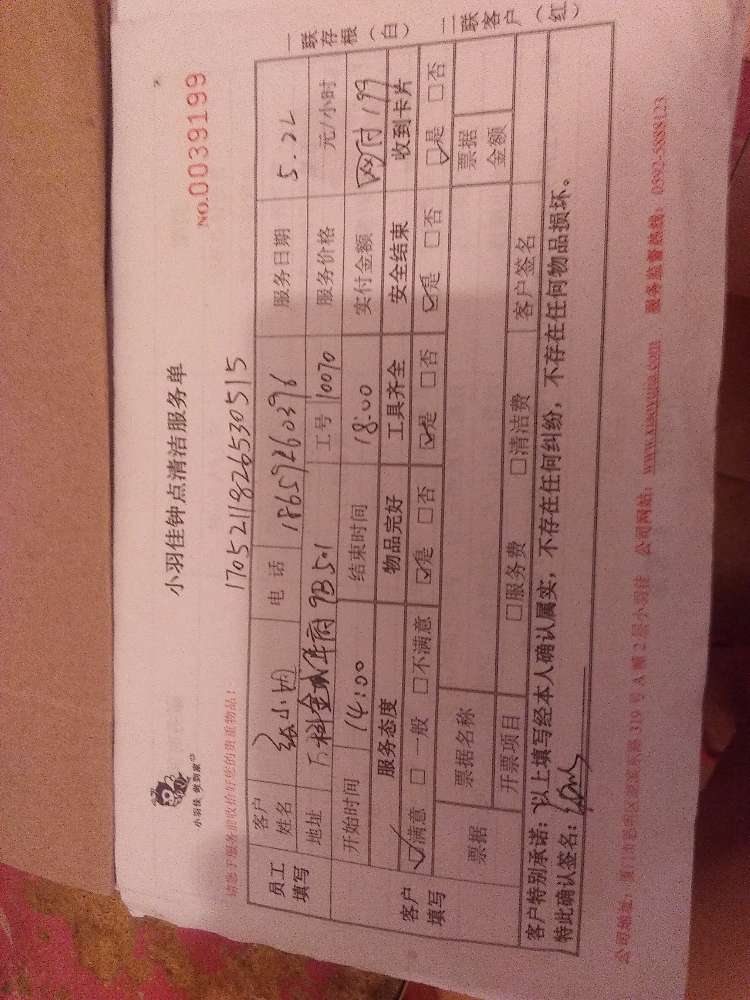 小羽佳 做到家
小羽佳钟点清洁服务单
NO.0039199
请您于服务前收拾好您的贵重物品！
17052118265305​15
员工填写 客户姓名 电话 18659260396 服务日期 5.22
地址 万科金域华府 9B 501 工号 10070 服务价格 元/小时
客户填写 开始时间 14:00 结束时间 18:00 实付金额 网付199
服务态度 物品完好 工具齐全 安全结束 收到卡片
☑满意 □一般 □不满意 ☑是 □否 ☑是 □否 ☑是 □否 ☑是 □否
票据 票据名称 票据金额
开票项目 □服务费 □清洁费 客户签名
客户特别承诺：以上填写经本人确认属实，不存在任何纠纷，不存在任何物品损坏。
特此确认签名：
公司地址：厦门市思明区 319号A幢2层小羽佳 公司网站：www.xiaoyujia.com 服务监督热线：0592-5888123
一联存根（白） 二联客户（红）